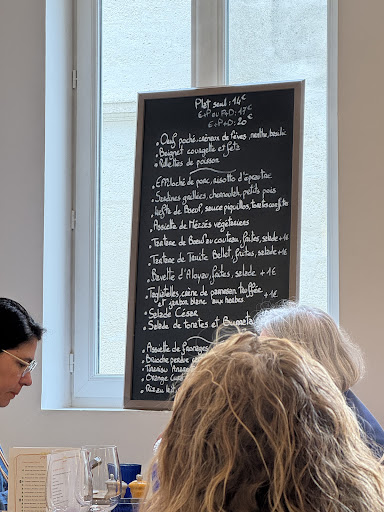 Plat seul : 14€
E+P ou P+D : 17€
E+P+D : 20€
• Oeuf poché, crémeux de fèves, menthe, basilic
• Beignet courgette et feta
• Rillettes de poisson
• Effiloché de porc, risotto d'épeautre
• Sardines grillées, chermoula, petits pois
• Keftas de Boeuf, sauce piquillos, tomates confites
• Assiette de Mézzés végétariens
• Tartare de Boeuf au couteau, frites, salade +1€
• Tartare de Truite Bellet, frites, salade +1€
• Bavette d'Aloyau, frites, salade +1€
• Tagliatelles, crème de parmesan truffée
et jambon blanc aux herbes +1€
• Salade César
• Salade de tomates et Burrata
• Assiette de fromages
• Brioche perdue
• Tiramisu
• Orange
• Riz au lait